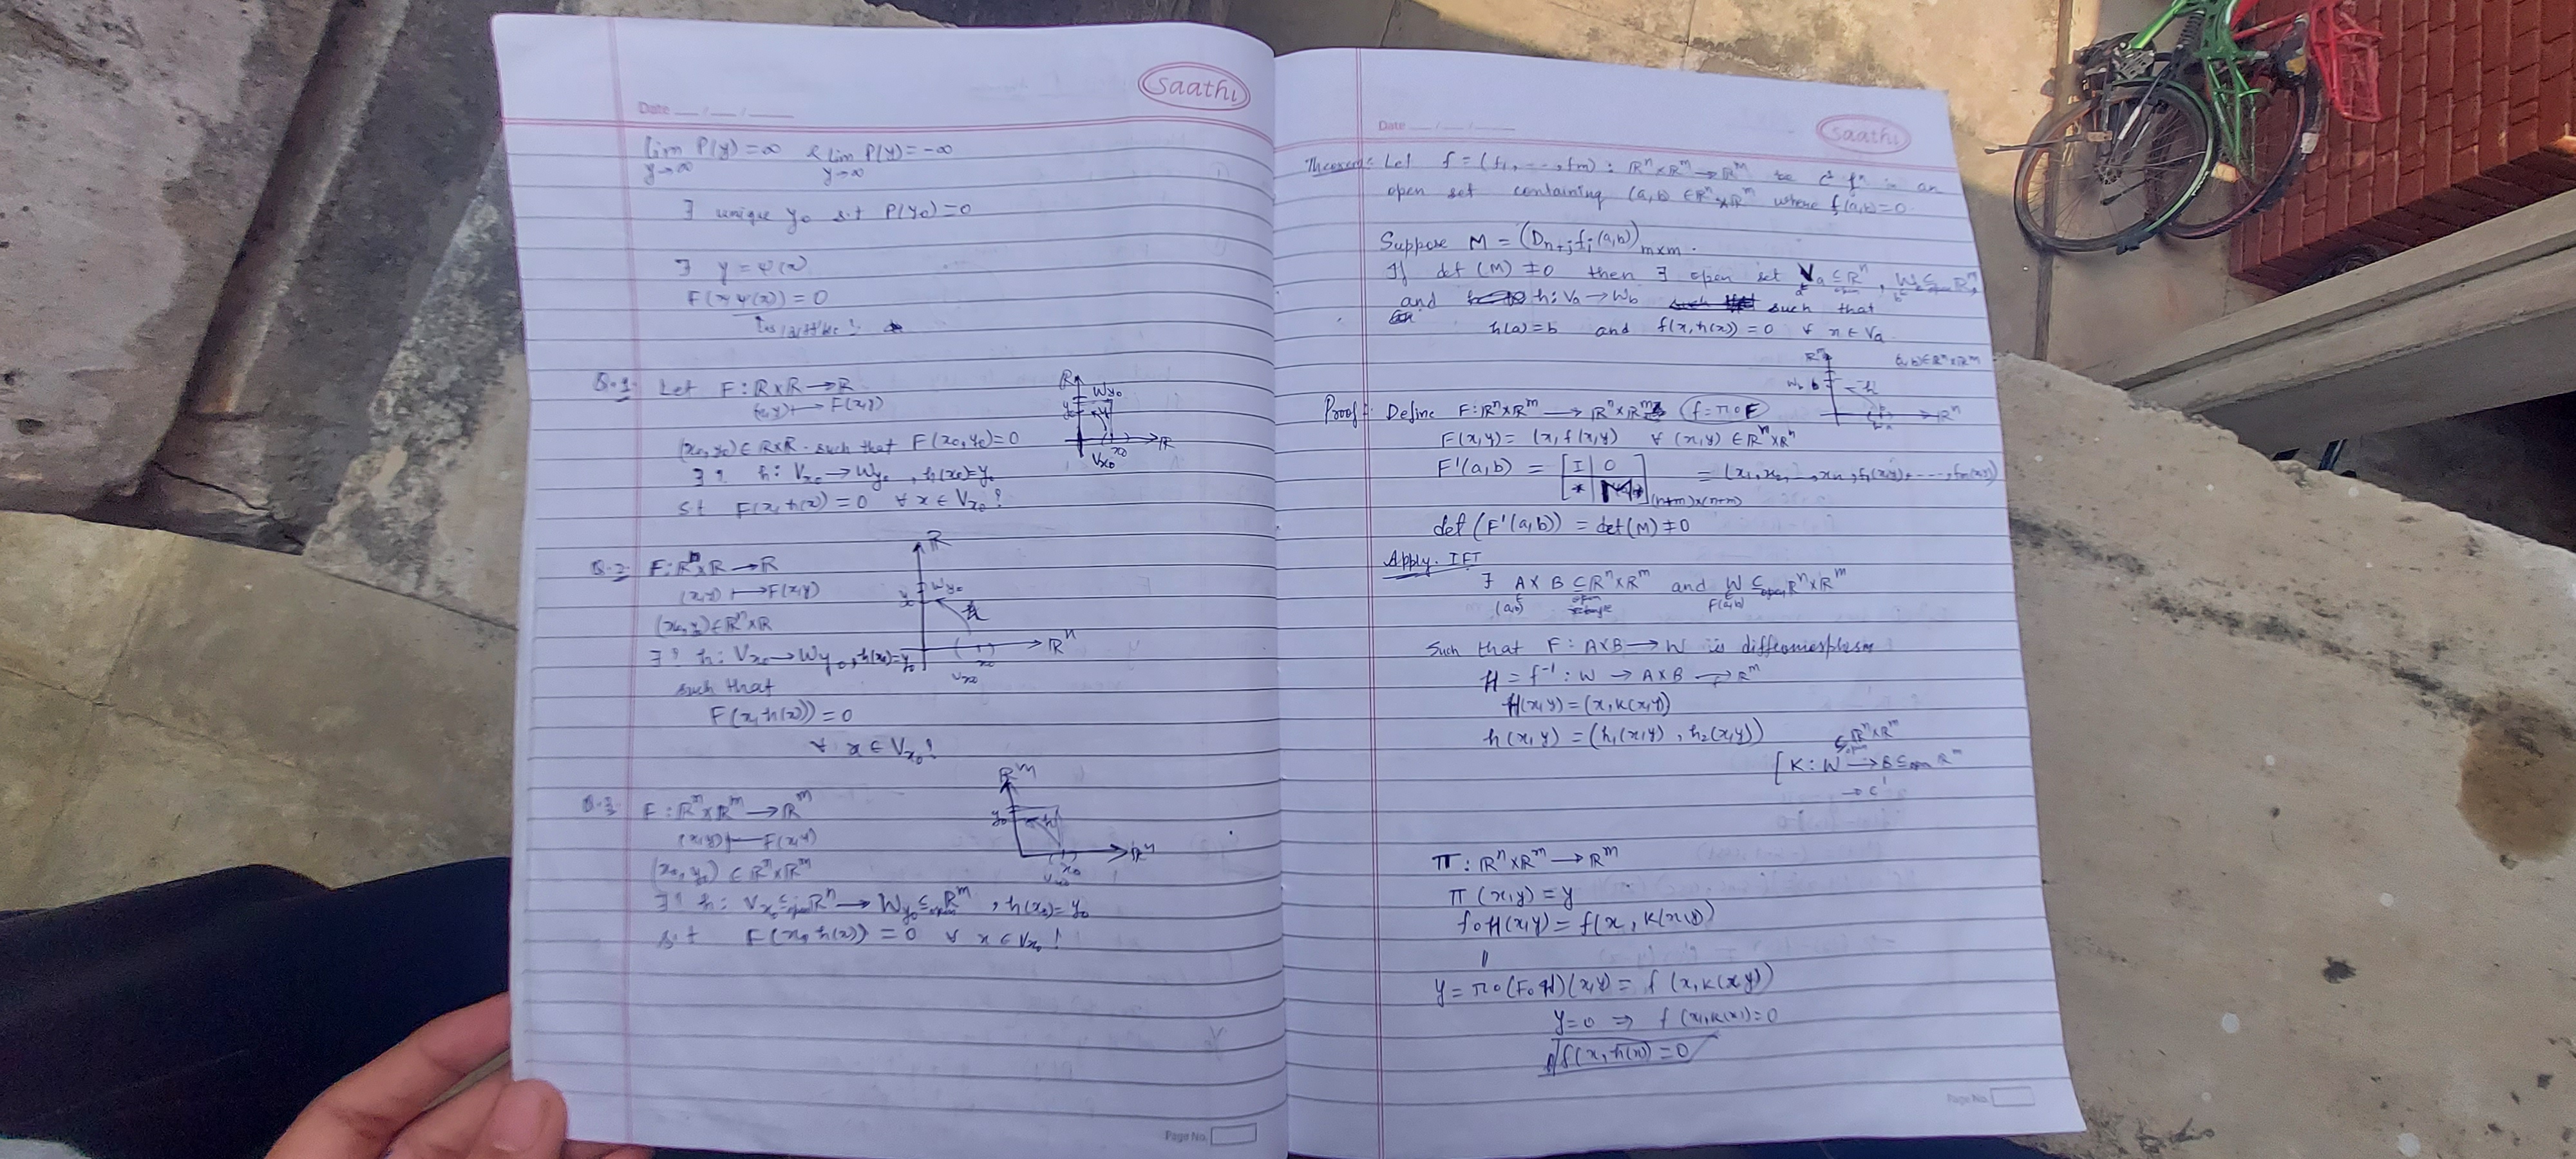 Saathi
Date __/__/____
lim P(y) = ∞ & lim P(y) = -∞
y→∞ y→∞
∃ unique y₀ s.t P(y₀) = 0
∃ y = ψ(x)
F(x, ψ(x)) = 0
Q.1. Let F : R×R → R
(x,y) ↦ F(x,y)
(x₀, y₀) ∈ R×R such that F(x₀, y₀) = 0
∃? h : Vx₀ → Wy₀, h(x₀) = y₀
st F(x, h(x)) = 0 ∀ x ∈ Vx₀!
R
Wy₀
y₀
x₀
R
Vx₀
Q.2. F : Rⁿ×R → R
(x,y) ↦ F(x,y)
(x₀, y₀) ∈ Rⁿ×R
∃? h : Vx₀ → Wy₀, h(x₀) = y₀
such that
F(x, h(x)) = 0
∀ x ∈ Vx₀!
R
Wy₀
y₀
h
Rⁿ
x₀
Vx₀
Q.3. F : Rⁿ×Rᵐ → Rᵐ
(x,y) ↦ F(x,y)
(x₀, y₀) ∈ Rⁿ×Rᵐ
∃? h : Vx₀ ⊆open Rⁿ → Wy₀ ⊆open Rᵐ, h(x₀) = y₀
s.t F(x, h(x)) = 0 ∀ x ∈ Vx₀!
Rᵐ
y₀
h
Rⁿ
x₀
Vx₀
Page No.
Saathi
Date __/__/____
Theorem: Let f = (f₁, ---, fm) : Rⁿ×Rᵐ → Rᵐ be C¹ fⁿ in an
open set containing (a,b) ∈ Rⁿ×Rᵐ where f(a,b) = 0.
Suppose M = (Dn+j fi (a,b)) m×m.
If det (M) ≠ 0 then ∃ open set Va ⊆ Rⁿ, Wb ⊆open Rᵐ
and h : Va → Wb such that
h(a) = b and f(x, h(x)) = 0 ∀ x ∈ Va
Rᵐ
(a,b) ∈ Rⁿ×Rᵐ
Wb b
h
Rⁿ
Proof: Define F : Rⁿ×Rᵐ → Rⁿ×Rᵐ f = π∘F
F(x,y) = (x, f(x,y)) ∀ (x,y) ∈ Rⁿ×Rⁿ
F'(a,b) = [I | 0
* | M] (n+m)×(n+m) = (x₁, x₂, -, xn, f₁(x,y), ----, fm(x,y))
det (F'(a,b)) = det(M) ≠ 0
Apply. IFT
∃ A × B ⊆ Rⁿ×Rᵐ and W ⊆open Rⁿ×Rᵐ
(a,b) open F(a,b)
Such that F : A×B → W is diffeomorphism
H = f⁻¹ : W → A×B → Rᵐ
H(x,y) = (x, k(x,y))
h(x,y) = (h₁(x,y), h₂(x,y))
⊆open Rⁿ×Rᵐ
[K : W → B ⊆open Rᵐ
π : Rⁿ×Rᵐ → Rᵐ
π (x,y) = y
foH(x,y) = f(x, k(x,y))
||
y = π∘(F∘H)(x,y) = f (x, k(x,y))
y=0 ⇒ f (x, k(x)) = 0
f(x, h(x)) = 0
Page No.